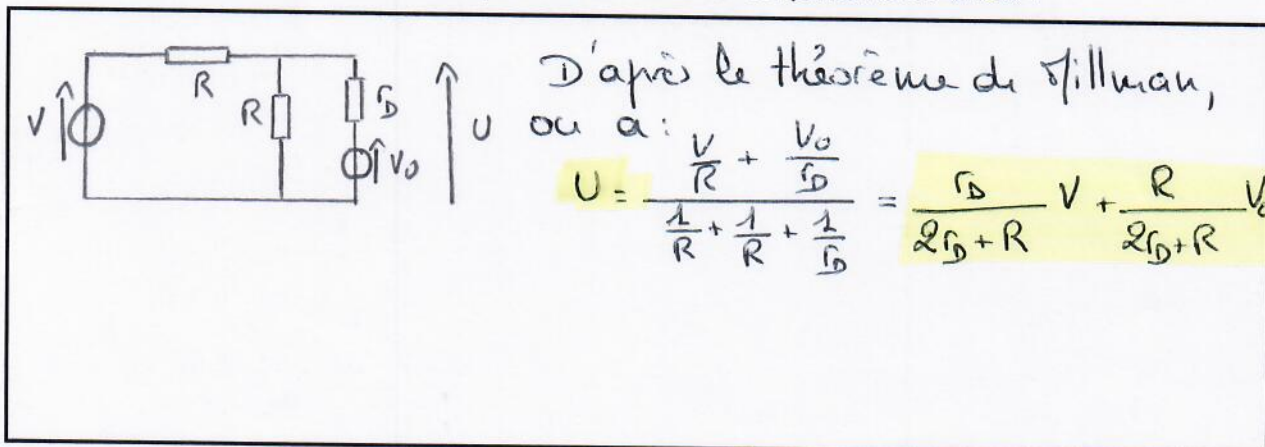 V
R
R
r_D
V_0
U
D'après le théorème de Millman,
on a:
U = \frac{\frac{V}{R} + \frac{V_0}{r_D}}{\frac{1}{R} + \frac{1}{R} + \frac{1}{r_D}} = \frac{r_D}{2r_D + R} V + \frac{R}{2r_D + R} V_0